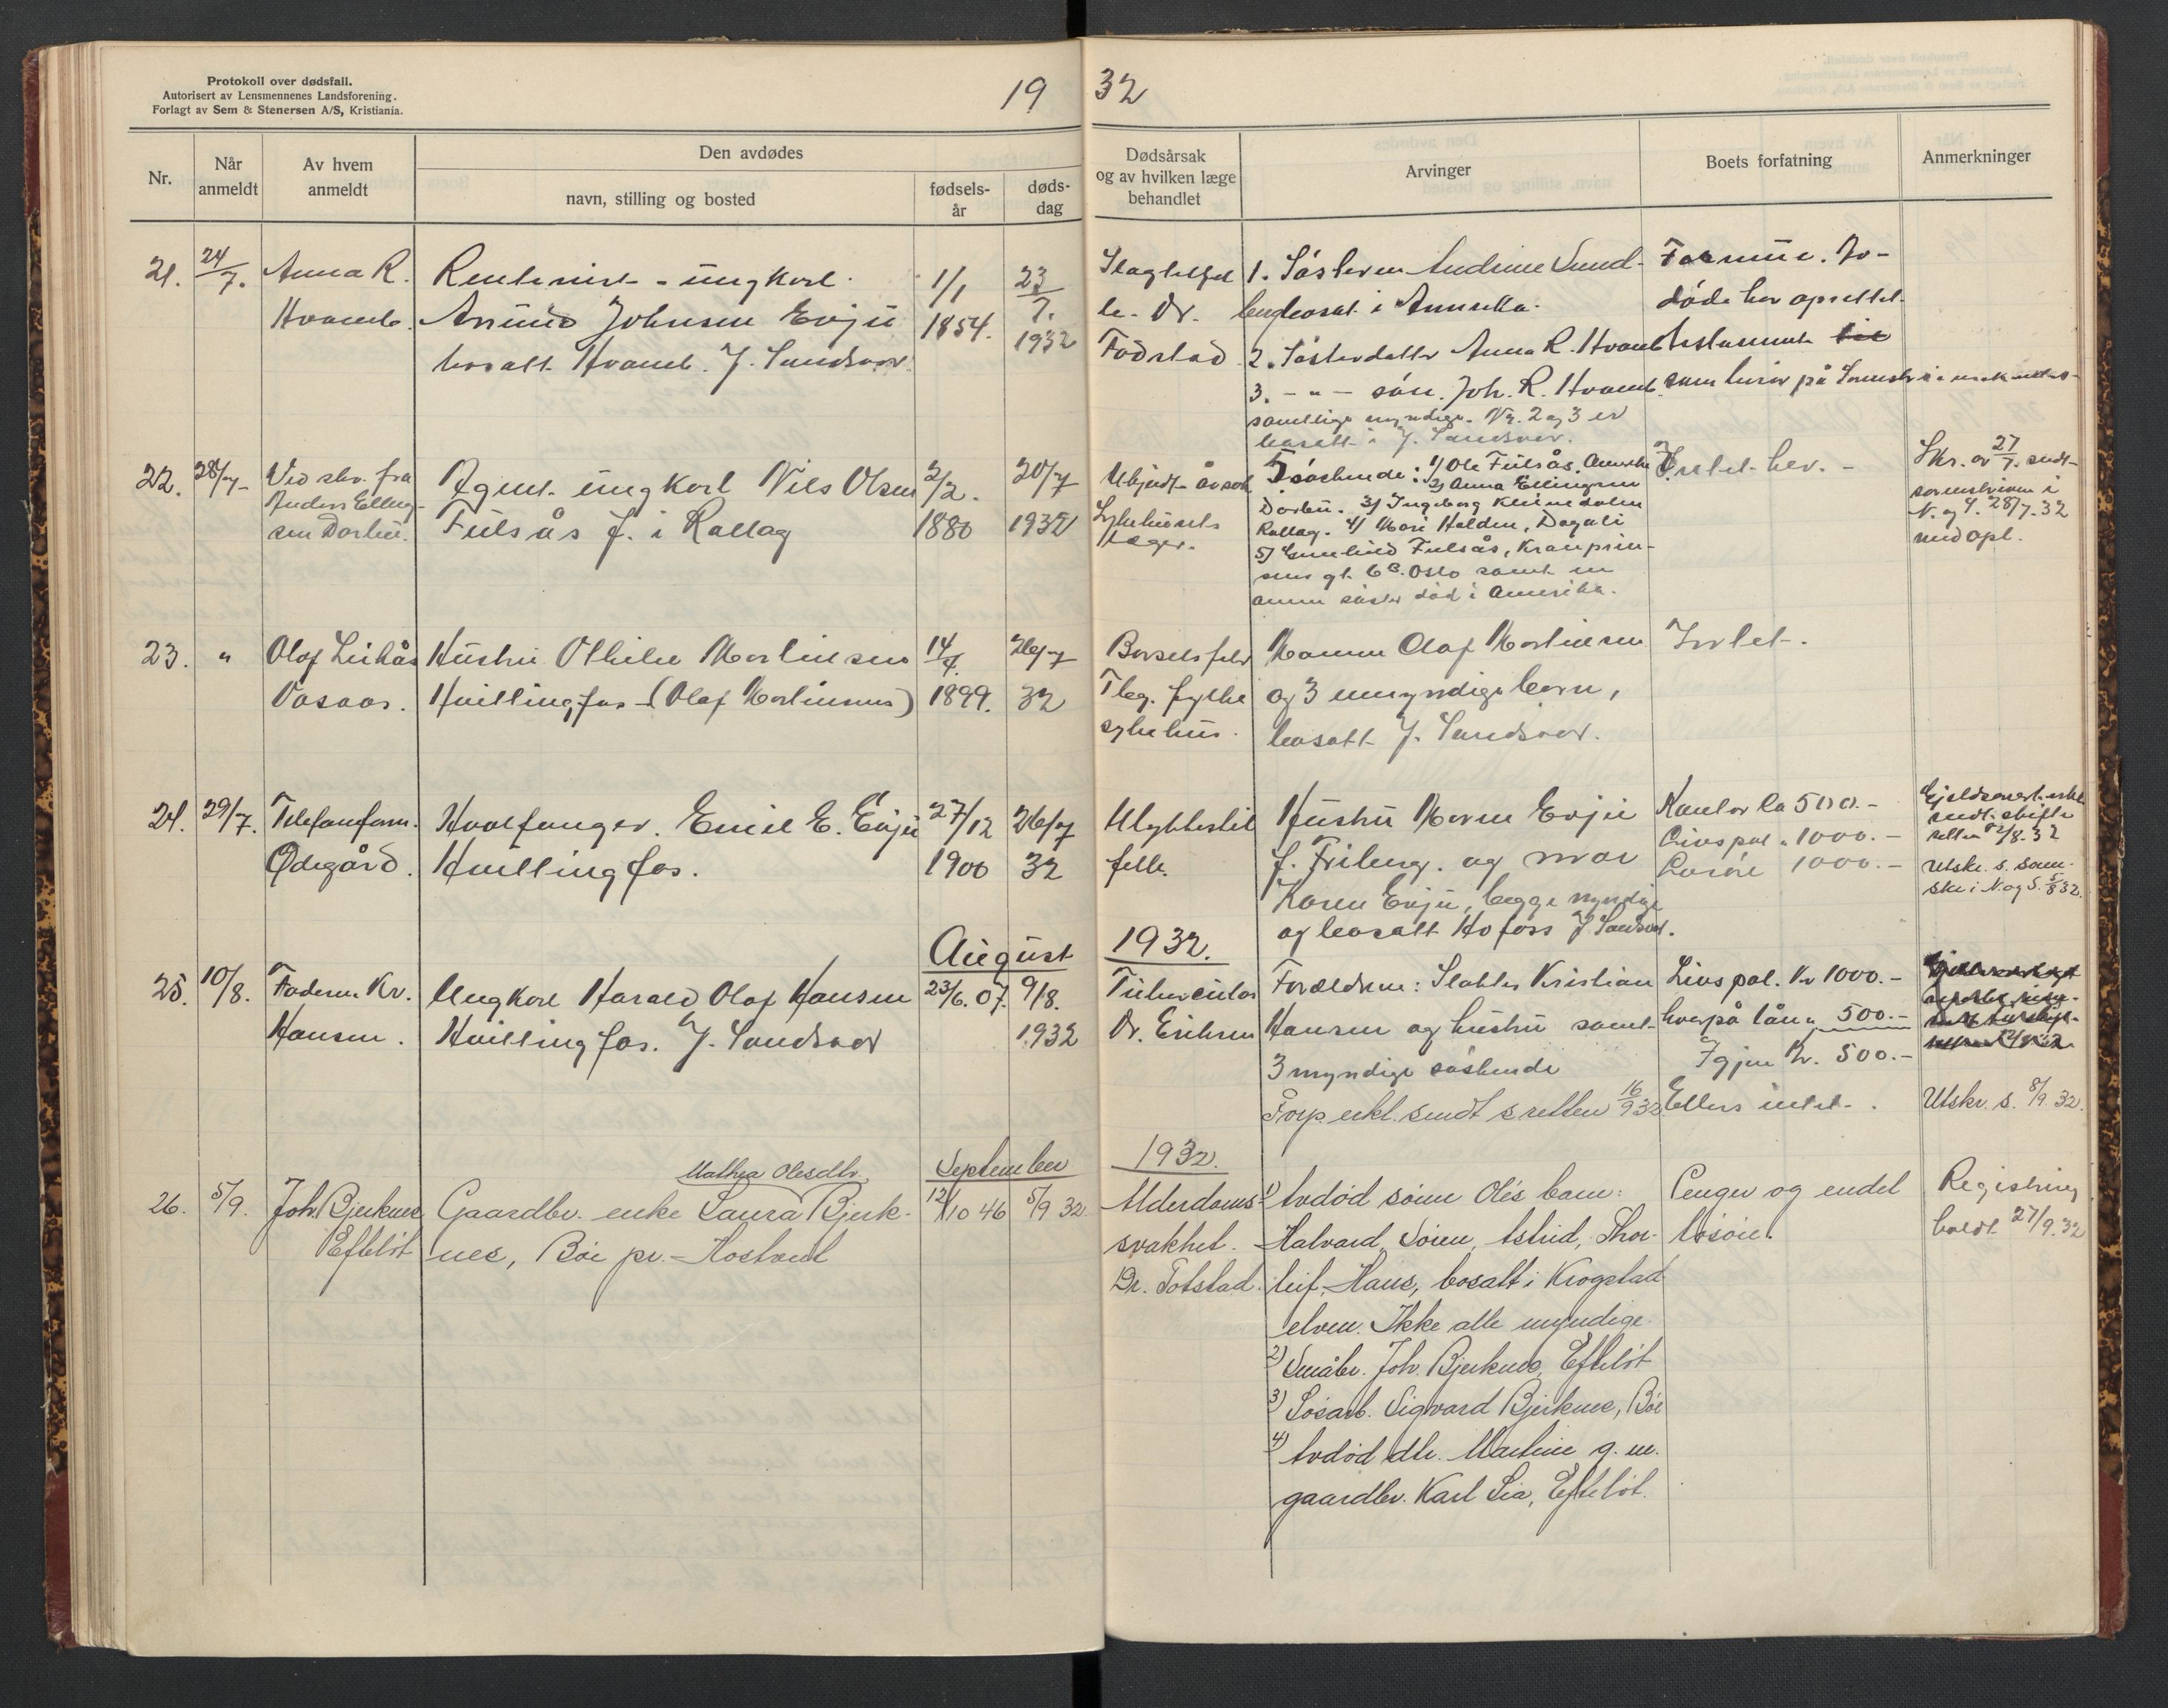 Protokoll over dødsfall.
Autorisert av Lensmennenes Landsforening.
Forlagt av Sem & Stenersen A/S, Kristiania.
19 32
Nr.
Når anmeldt
Av hvem anmeldt
Den avdødes
navn, stilling og bosted
fødsels-år
døds-dag
Dødsårsak og av hvilken læge behandlet
Arvinger
Boets forfatning
Anmerkninger
21. 24/7. Anna R. Hvamb.
Rentenist - ungkarl.
Amund Johnsen Evju
bosatt Hvamb. Y. Sandsvær.
1/1 1854. 23/7. 1932
Slagtilfel
le. Dr.
Fodstad
1. Søsteren Andrine Sund-
bosat i Amerika.
2. Søsterdatter Anna R. Hvamb
3. - " - søn. Joh. R. Hvamb.
samtlige myndige. Nr. 2 og 3 er
bosatt i Y. Sandsvær.
Formue. Av-
døde har oprettet
testamente
som beror på
22. 28/7 Ved skr. fra
Anders Elling-
sen Dorbu.
Agent ungkarl Nils Olsen
Fulsås f. i Rollag
2/2. 1880 20/7 1932
Ubgudt årsak
Sykehusets
læger.
Søskende: 1) Ole Fulsås, Amerika
2) Anna Ellingsen
Dorbu. 3) Ingeborg Kleivedalen
Rollag. 4) Mari Halden, Dagali
5) Fulsås, Kronprin-
sens gt. 6B. Oslo samt en
annen søster død i Amerika.
Intet bev. -
Skr. av 27/7. sendt
sorenskriven i
N. og S. 28/7-32
med opl.
23. " Olaf Leikås
Vasaas.
Hustru Othilie Martinsen
Hvittingfos (Olaf Martinsens)
14/4. 1899. 26/7 32
Barselsfeb
Tbg. fylke
sykehus.
Mannen Olaf Martinsen
og 3 umyndige barn,
bosatt Y. Sandsvær.
Intet.
24. 29/7. Telefonform.
Ødegård.
Hvalfanger. Emil E. Evju
Hvittingfos.
27/12 1900 26/7 32
Ulykkestil
felle.
Hustru Maren Evju
f. Friberg. og mor
Karen Evju, begge myndige
og bosatt Hofoss Y. Sandsvær.
Kontor ca 500.-
Livspol. " 1000.-
Løsøre 1000.-
sendt skifte
retten 12/8-32
Utskr. s. soren-
skr i N. og S. 5/8 32.
August 1932.
25. 10/8. Faderen Kr.
Hansen.
Ungkarl Harald Olaf Hansen
Hvittingfos. Y. Sandsvær
23/6. 07. 9/8. 1932
Tuberculos
Dr. Eriksen
Foreldrene: Slakter Kristian
Hansen og hustru samt
3 myndige søskende
Forp. erkl. sendt s. retten 16/9 32
Livspol. Kr 1000.-
herpå lån " 500.-
Igjen Kr. 500.-
Ellers intet.
Utskr. s. 8/9. 32.
September 1932.
26. 5/9. Joh. Bjerknes
Efteløt
Mathea Olesdtr.
Gaardbr. enke Laura Bjerk-
nes, Bøe pr. Hostvedt
12/10 46 5/9 32
Alderdoms-
svakhet.
Dr. Fotstad.
1) Avdød sønn Oles barn:
Halvard, Søren, Astrid, Thor-
leif, Hans, bosatt i Krogstad-
elven. Ikke alle myndige.
2) Småbr. Joh. Bjerknes, Efteløt
3) Løsarb. Sigvard Bjerknes, Bøe
4) Avdød dtr. Martine g. m.
gaardbr. Karl Lia, Efteløt.
Penger og endel
løsøre.
Registring
holdt 27/9.32